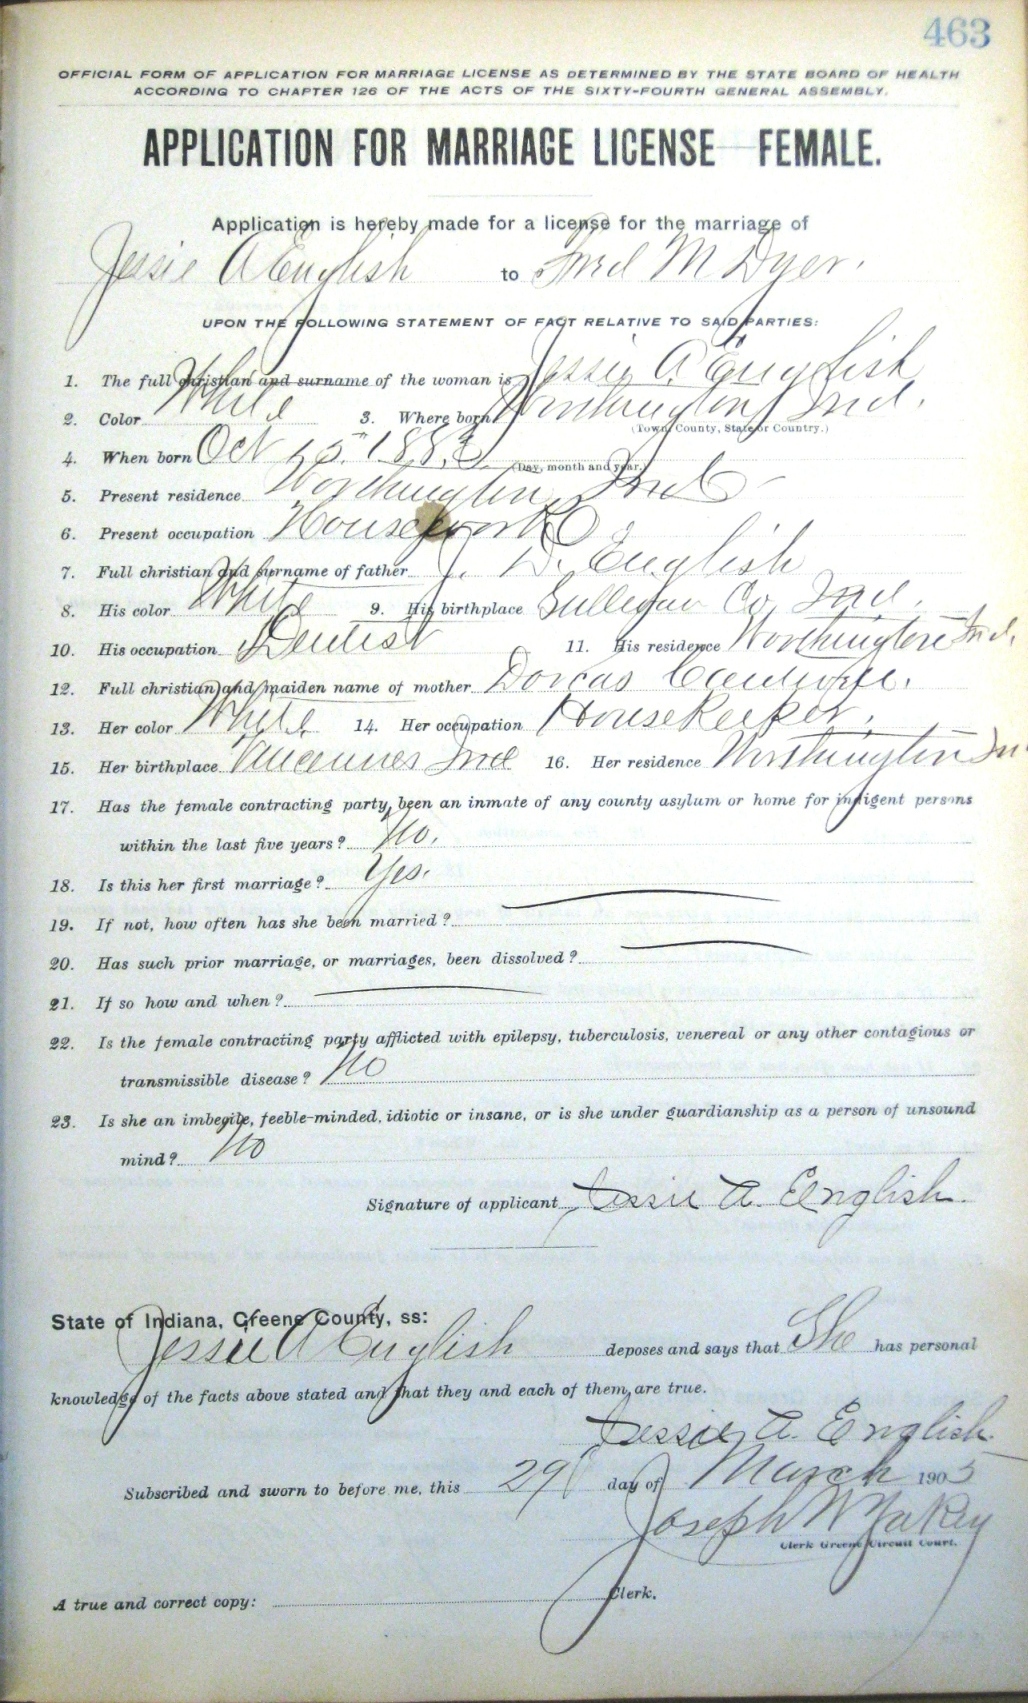 463
OFFICIAL FORM OF APPLICATION FOR MARRIAGE LICENSE AS DETERMINED BY THE STATE BOARD OF HEALTH
ACCORDING TO CHAPTER 126 OF THE ACTS OF THE SIXTY-FOURTH GENERAL ASSEMBLY.
APPLICATION FOR MARRIAGE LICENSE FEMALE.
Application is hereby made for a license for the marriage of
Jessie A English to Fred M Dyer.
UPON THE FOLLOWING STATEMENT OF FACT RELATIVE TO SAID PARTIES:
1. The full christian and surname of the woman is Jessie A English
2. Color White 3. Where born Worthington, Ind.
(Town, County, State or Country.)
4. When born Oct 1883
(Day, month and year.)
5. Present residence Worthington, Ind
6. Present occupation Housework
7. Full christian and surname of father J. D. English
8. His color White 9. His birthplace Sullivan Co, Ind.
10. His occupation Dentist 11. His residence Worthington Ind.
12. Full christian and maiden name of mother Dorcas
13. Her color White 14. Her occupation Housekeeper.
15. Her birthplace Vincennes Ind 16. Her residence Worthington In
17. Has the female contracting party, been an inmate of any county asylum or home for indigent persons
within the last five years? No.
18. Is this her first marriage? Yes.
19. If not, how often has she been married?
20. Has such prior marriage, or marriages, been dissolved?
21. If so how and when?
22. Is the female contracting party afflicted with epilepsy, tuberculosis, venereal or any other contagious or
transmissible disease? No
23. Is she an imbecile, feeble-minded, idiotic or insane, or is she under guardianship as a person of unsound
mind? No
Signature of applicant Jessie A. English.
State of Indiana, Greene County, ss:
Jessie A English deposes and says that She has personal
knowledge of the facts above stated and that they and each of them, are true.
Jessie A. English.
Subscribed and sworn to before me, this 29 day of March 1905
Joseph W
Clerk Greene Circuit Court.
A true and correct copy: Clerk.